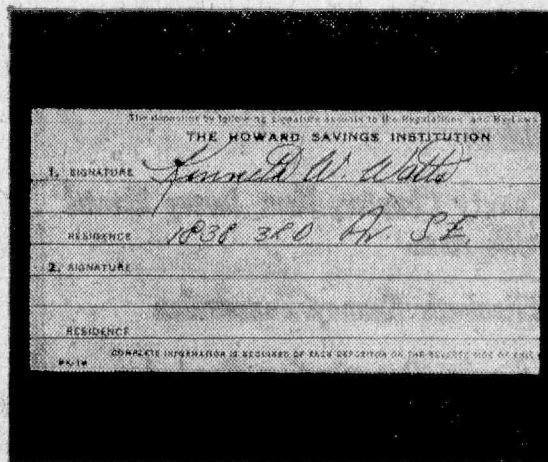 The depositor by following signature assents to the Regulations and By-Laws
THE HOWARD SAVINGS INSTITUTION
1. SIGNATURE Kenneth W. Watts
RESIDENCE 1838 3RD Av S.E.
2. SIGNATURE
RESIDENCE
COMPLETE INFORMATION IS REQUIRED OF EACH DEPOSITOR ON THE REVERSE SIDE OF